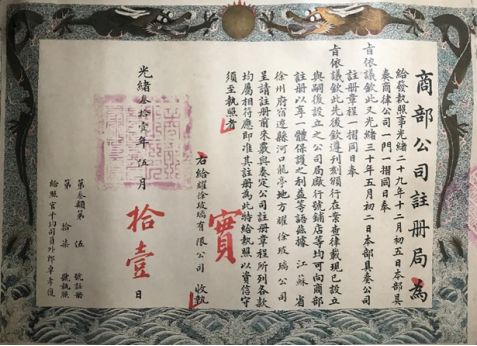 商部公司註冊局為
給發執照事光緒二十九年十二月初五日本部具
奏商律公司一門一摺同日奉
旨依議欽此又光緒三十年五月初二日本部具奏公司
註冊章程一摺同日奉
旨依議欽此先後欽遵刊刻頒行在案查律載現已設立
與嗣後設立之公司局廠行號鋪店等均可向商部
註冊以享一體保護之利益等語茲據 江蘇省
徐州府宿遷縣河口龍亭地方耀徐玻璃公司
呈請註冊前來覈與奏定公司註冊章程所列各款
均屬相符應即准其註冊為此特給執照以資信守
須至執照者
右給耀徐玻璃有限公司 收執
實
光緒叁拾壹年伍月 拾壹 日
第叁類第 伍 號註冊
第 拾柒 號執照
給照官平均司員外郎章孝